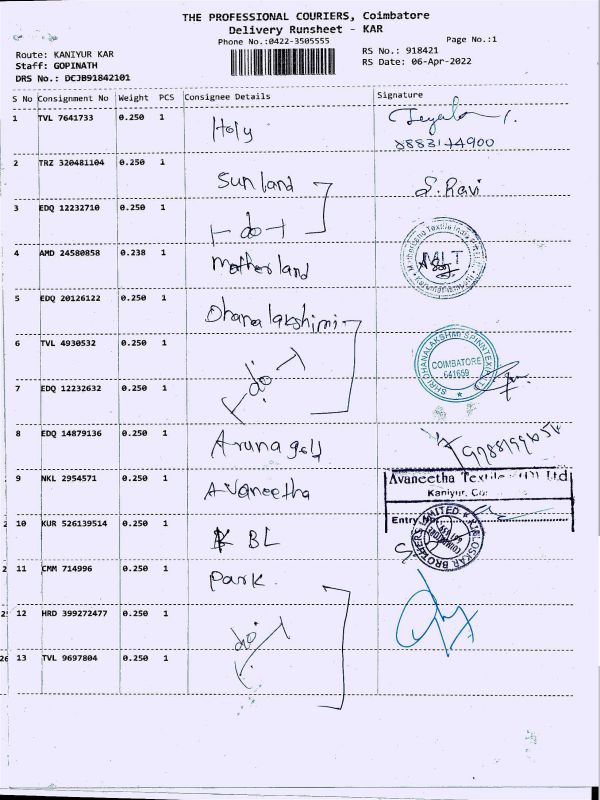 THE PROFESSIONAL COURIERS, Coimbatore
Delivery Runsheet - KAR
Phone No.:0422-3505555
Page No.:1
Route: KANIYUR KAR
RS No.: 918421
Staff: GOPINATH
RS Date: 06-Apr-2022
DRS No.: DCJB91842101
S No Consignment No Weight PCS Consignee Details Signature
1 TVL 7641733 0.250 1 Holy
2 TRZ 320481104 0.250 1 Sunland S. Ravi
3 EDQ 12232710 0.250 1 do
4 AMD 24580858 0.238 1 Motherland
5 EDQ 20126122 0.250 1 Dhanalakshimi
6 TVL 4930532 0.250 1 do
COIMBATORE
641659
7 EDQ 12232632 0.250 1
8 EDQ 14879136 0.250 1 Arunagold
9 NKL 2954571 0.250 1 Avaneetha
Avaneetha Textile (P) Ltd
Kaniyur,
Entry No
10 KUR 526139514 0.250 1 KBL
KIRLOSKAR BROTHERS LIMITED
11 CMM 714996 0.250 1 park
12 HRD 399272477 0.250 1 do
13 TVL 9697804 0.250 1